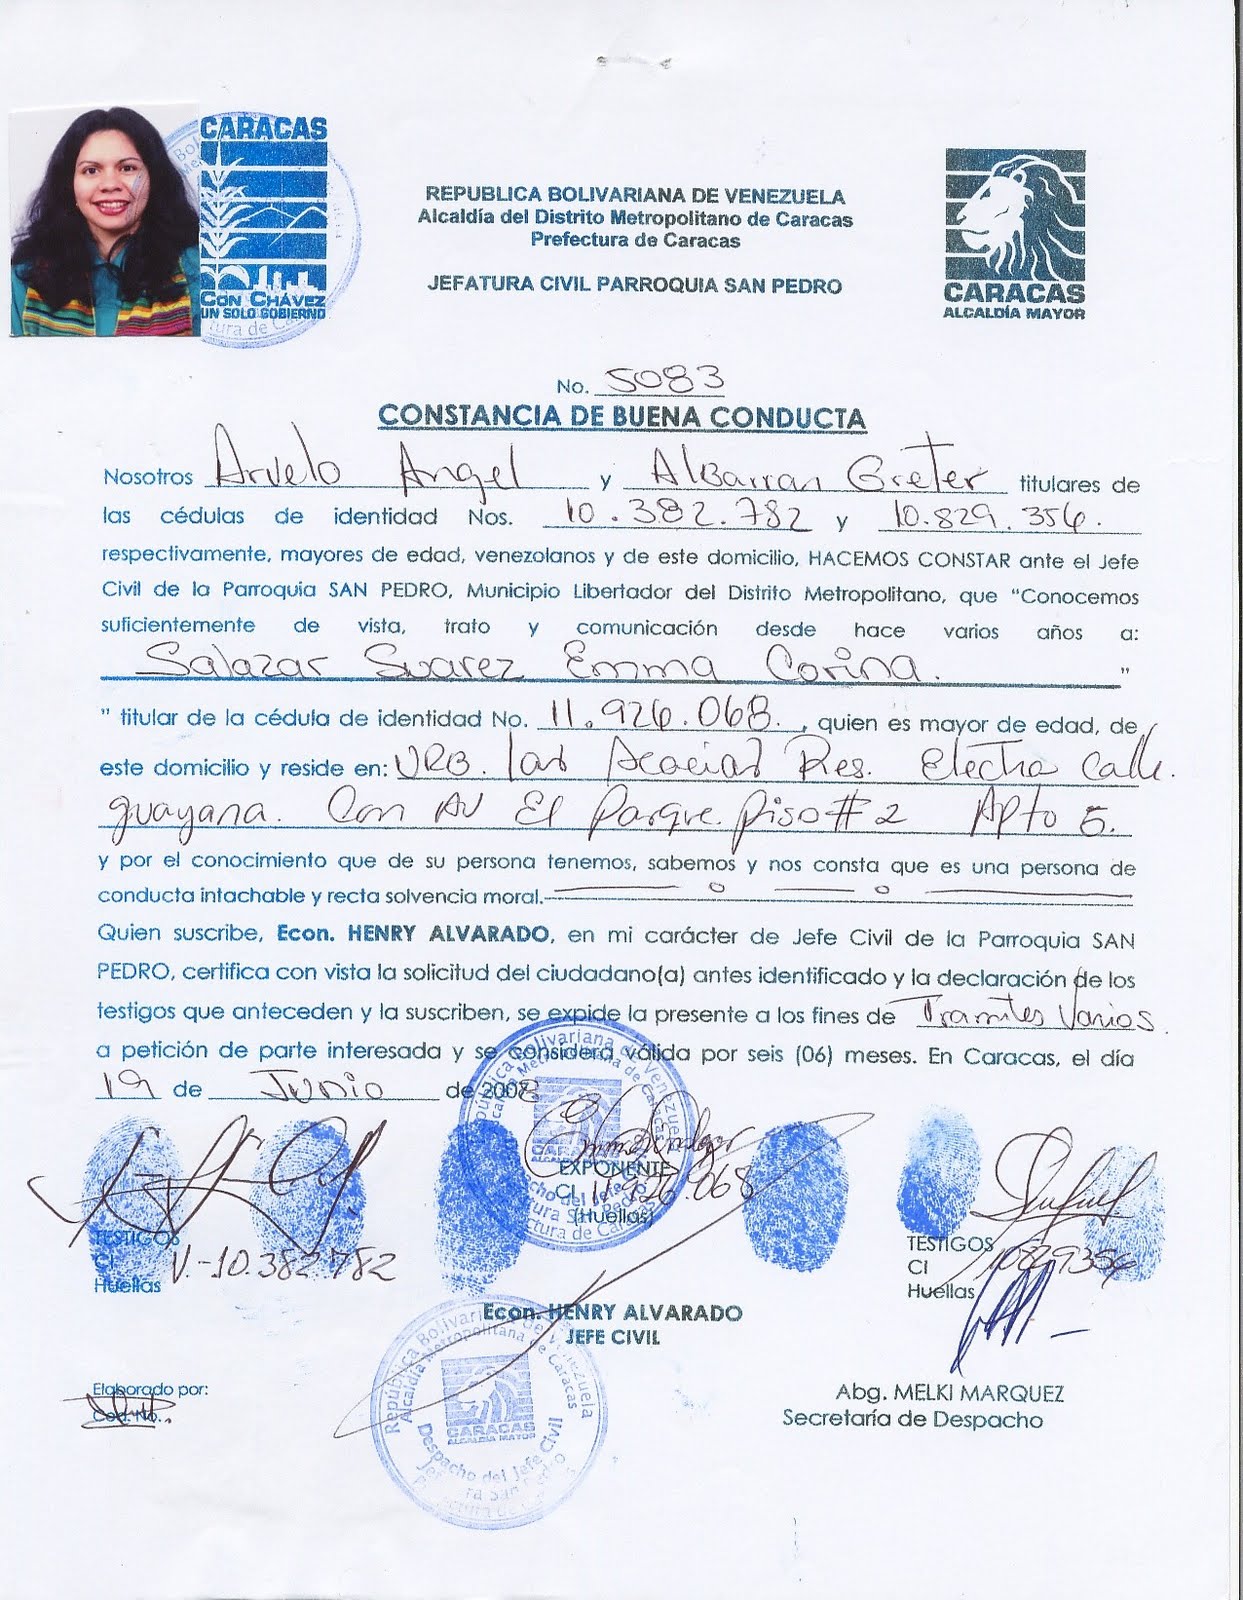 CARACAS
CON CHÁVEZ
UN SOLO GOBIERNO
REPUBLICA BOLIVARIANA DE VENEZUELA
Alcaldía del Distrito Metropolitano de Caracas
Prefectura de Caracas
JEFATURA CIVIL PARROQUIA SAN PEDRO
CARACAS
ALCALDÍA MAYOR
No. 5083
CONSTANCIA DE BUENA CONDUCTA
Nosotros Arvelo Angel y Albarran Greter titulares de
las cédulas de identidad Nos. 10.382.782 y 10.829.356.
respectivamente, mayores de edad, venezolanos y de este domicilio, HACEMOS CONSTAR ante el Jefe
Civil de la Parroquia SAN PEDRO, Municipio Libertador del Distrito Metropolitano, que "Conocemos
suficientemente de vista, trato y comunicación desde hace varios años a:
Salazar Suarez Emma Corina. "
" titular de la cédula de identidad No. 11.926.068. , quien es mayor de edad, de
este domicilio y reside en: URB. las Acacias Res. Electra Calle
guayana. Con AV El Parque. piso #2 Apto 5.
y por el conocimiento que de su persona tenemos, sabemos y nos consta que es una persona de
conducta intachable y recta solvencia moral.
Quien suscribe, Econ. HENRY ALVARADO, en mi carácter de Jefe Civil de la Parroquia SAN
PEDRO, certifica con vista la solicitud del ciudadano(a) antes identificado y la declaración de los
testigos que anteceden y la suscriben, se expide la presente a los fines de Tramites Varios
a petición de parte interesada y se considera válida por seis (06) meses. En Caracas, el día
19 de Junio de 2008
EXPONENTE
CI 11.926.068
(Huellas)
TESTIGOS
CI V.-10.382782
Huellas
TESTIGOS
CI 10829356
Huellas
Econ. HENRY ALVARADO
JEFE CIVIL
República Bolivariana de Venezuela
Alcaldía Metropolitana de Caracas
CARACAS
ALCALDÍA MAYOR
Despacho del Jefe Civil
Elaborado por:
Cod. No.
Abg. MELKI MARQUEZ
Secretaría de Despacho